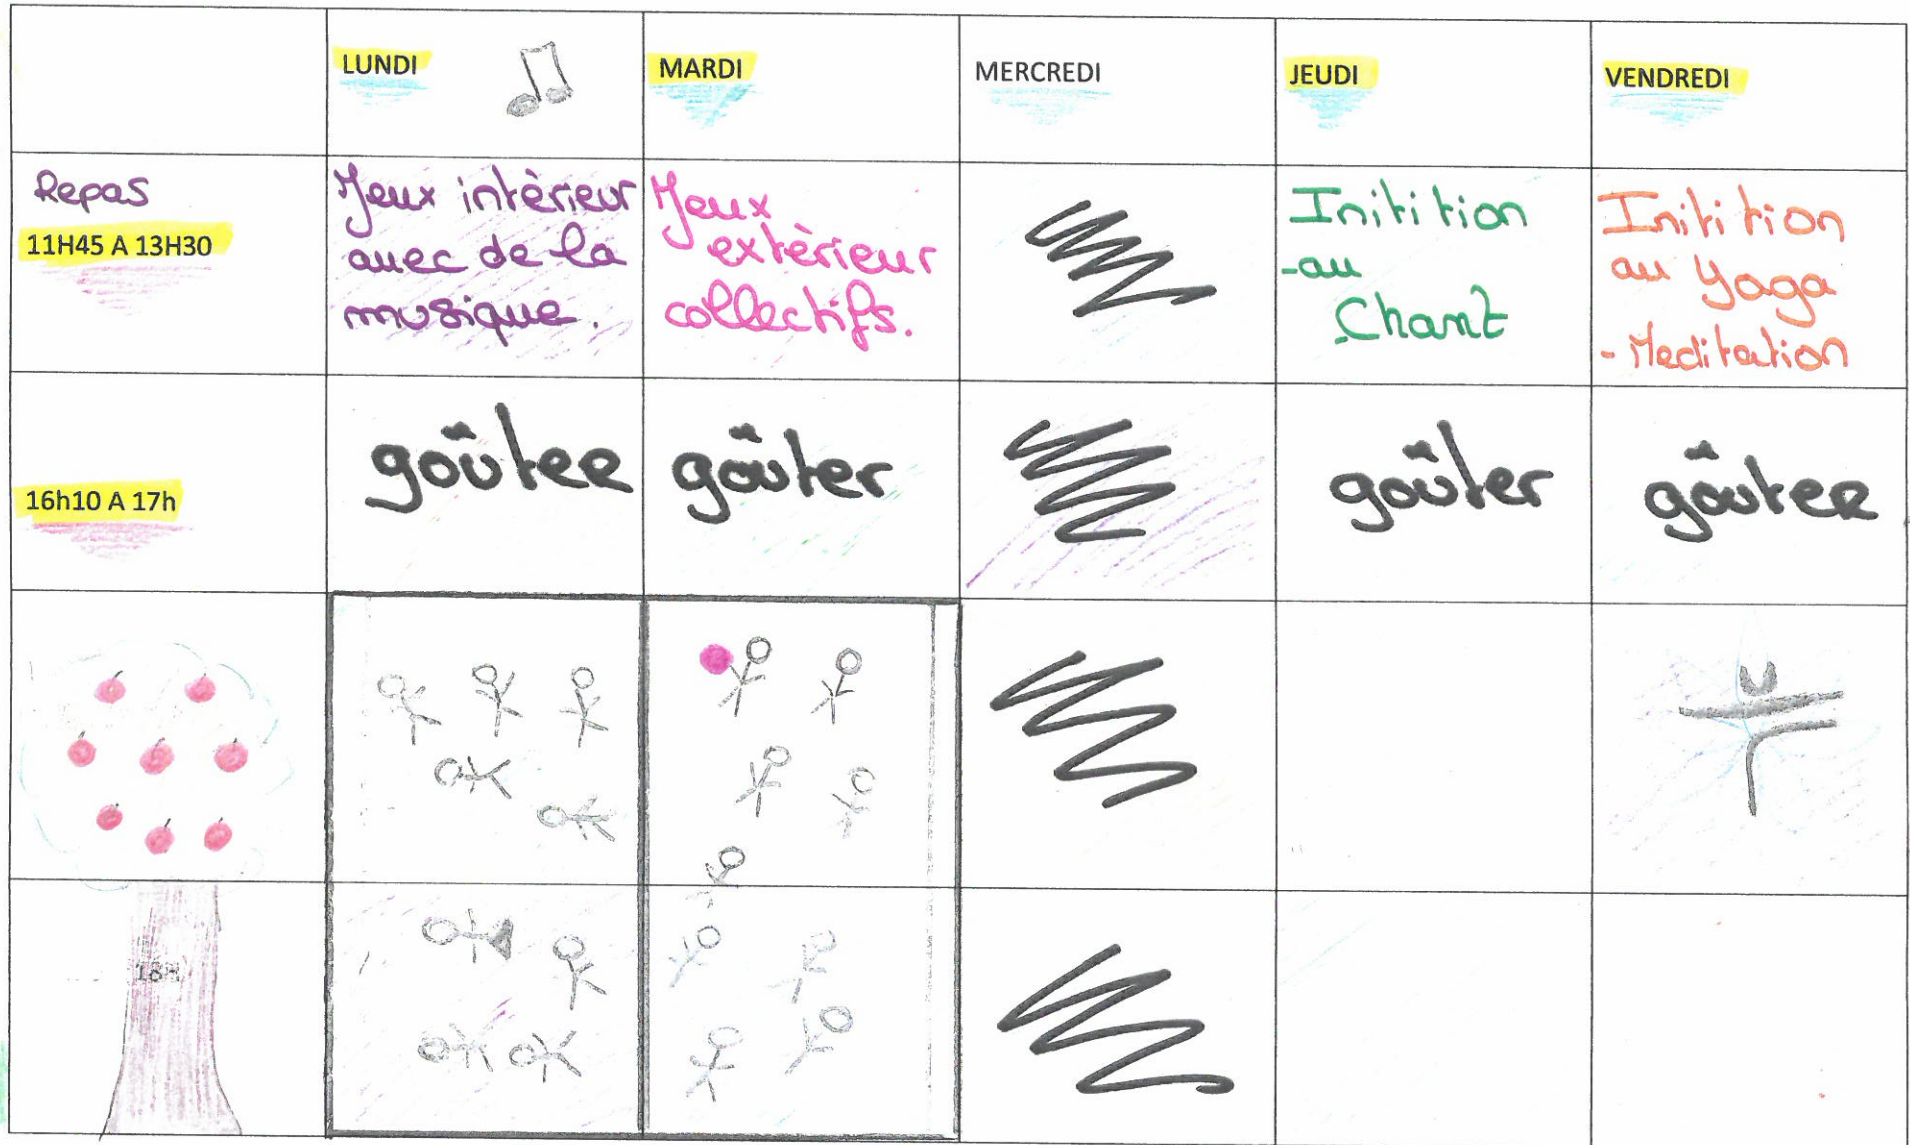 LUNDI
MARDI
MERCREDI
JEUDI
VENDREDI
Repas
11H45 A 13H30
Jeux intèrieur
avec de la
musique.
Jeux
extèrieur
collectifs.
Initition
-au
-Chant
Initition
au Yaga
- Meditation
16h10 A 17h
goûter
goûter
goûter
goûter
18H